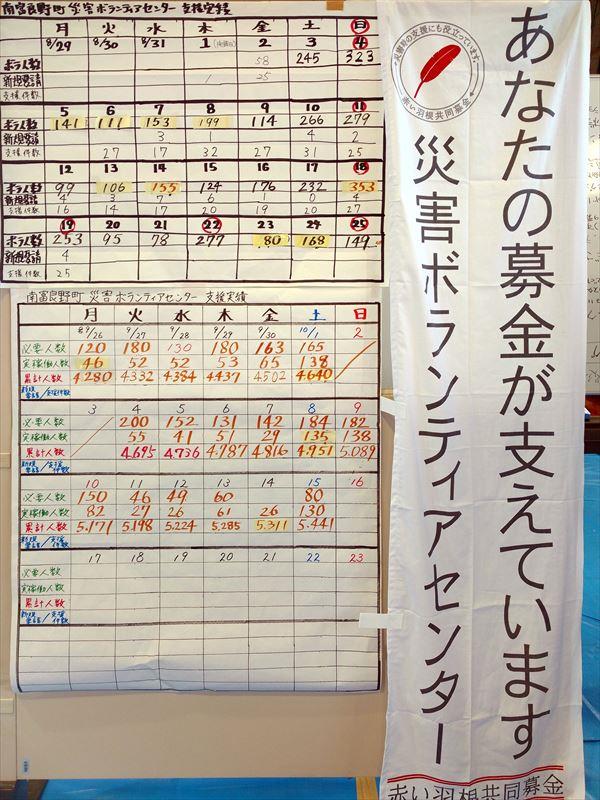 南富良野町 災害ボランティアセンター 支援実績
月 火 水 木 金 土 日
8/29 8/30 8/31 1 2 3 4
ボラ人数 58 245 323
新規要請 1 25
支援件数
5 6 7 8 9 10 11
ボラ人数 141 111 153 199 114 266 279
新規要請 3 1 4 2
支援件数 27 17 32 27 31 25
12 13 14 15 16 17 18
ボラ人数 99 106 155 124 176 232 353
新規要請 4 3 7 6 1 0 4
支援件数 16 14 17 20 19 20 27
19 20 21 22 23 24 25
ボラ人数 253 95 78 277 80 168 149
新規要請 4
支援件数 25
南富良野町 災害ボランティアセンター 支援実績
月 火 水 木 金 土 日
9/26 9/27 9/28 9/29 9/30 10/1 2
必要人数 120 180 130 180 163 165
実稼働人数 46 52 52 53 65 138
累計人数 4280 4332 4384 4437 4502 4640
新規要請/支援件数
3 4 5 6 7 8 9
必要人数 200 152 131 142 184 182
実稼働人数 55 41 51 29 135 138
累計人数 4.695 4.736 4.787 4.816 4.951 5.089
新規要請/支援件数
10 11 12 13 14 15 16
必要人数 150 46 49 60 80
実稼働人数 82 27 26 61 26 130
累計人数 5.171 5.198 5.224 5.285 5.311 5.441
新規要請/支援件数
17 18 19 20 21 22 23
必要人数
実稼働人数
累計人数
新規要請/支援件数
あなたの募金が支えています
災害ボランティアセンター
災害時の支援にも役立っています。
赤い羽根共同募金
赤い羽根共同募金